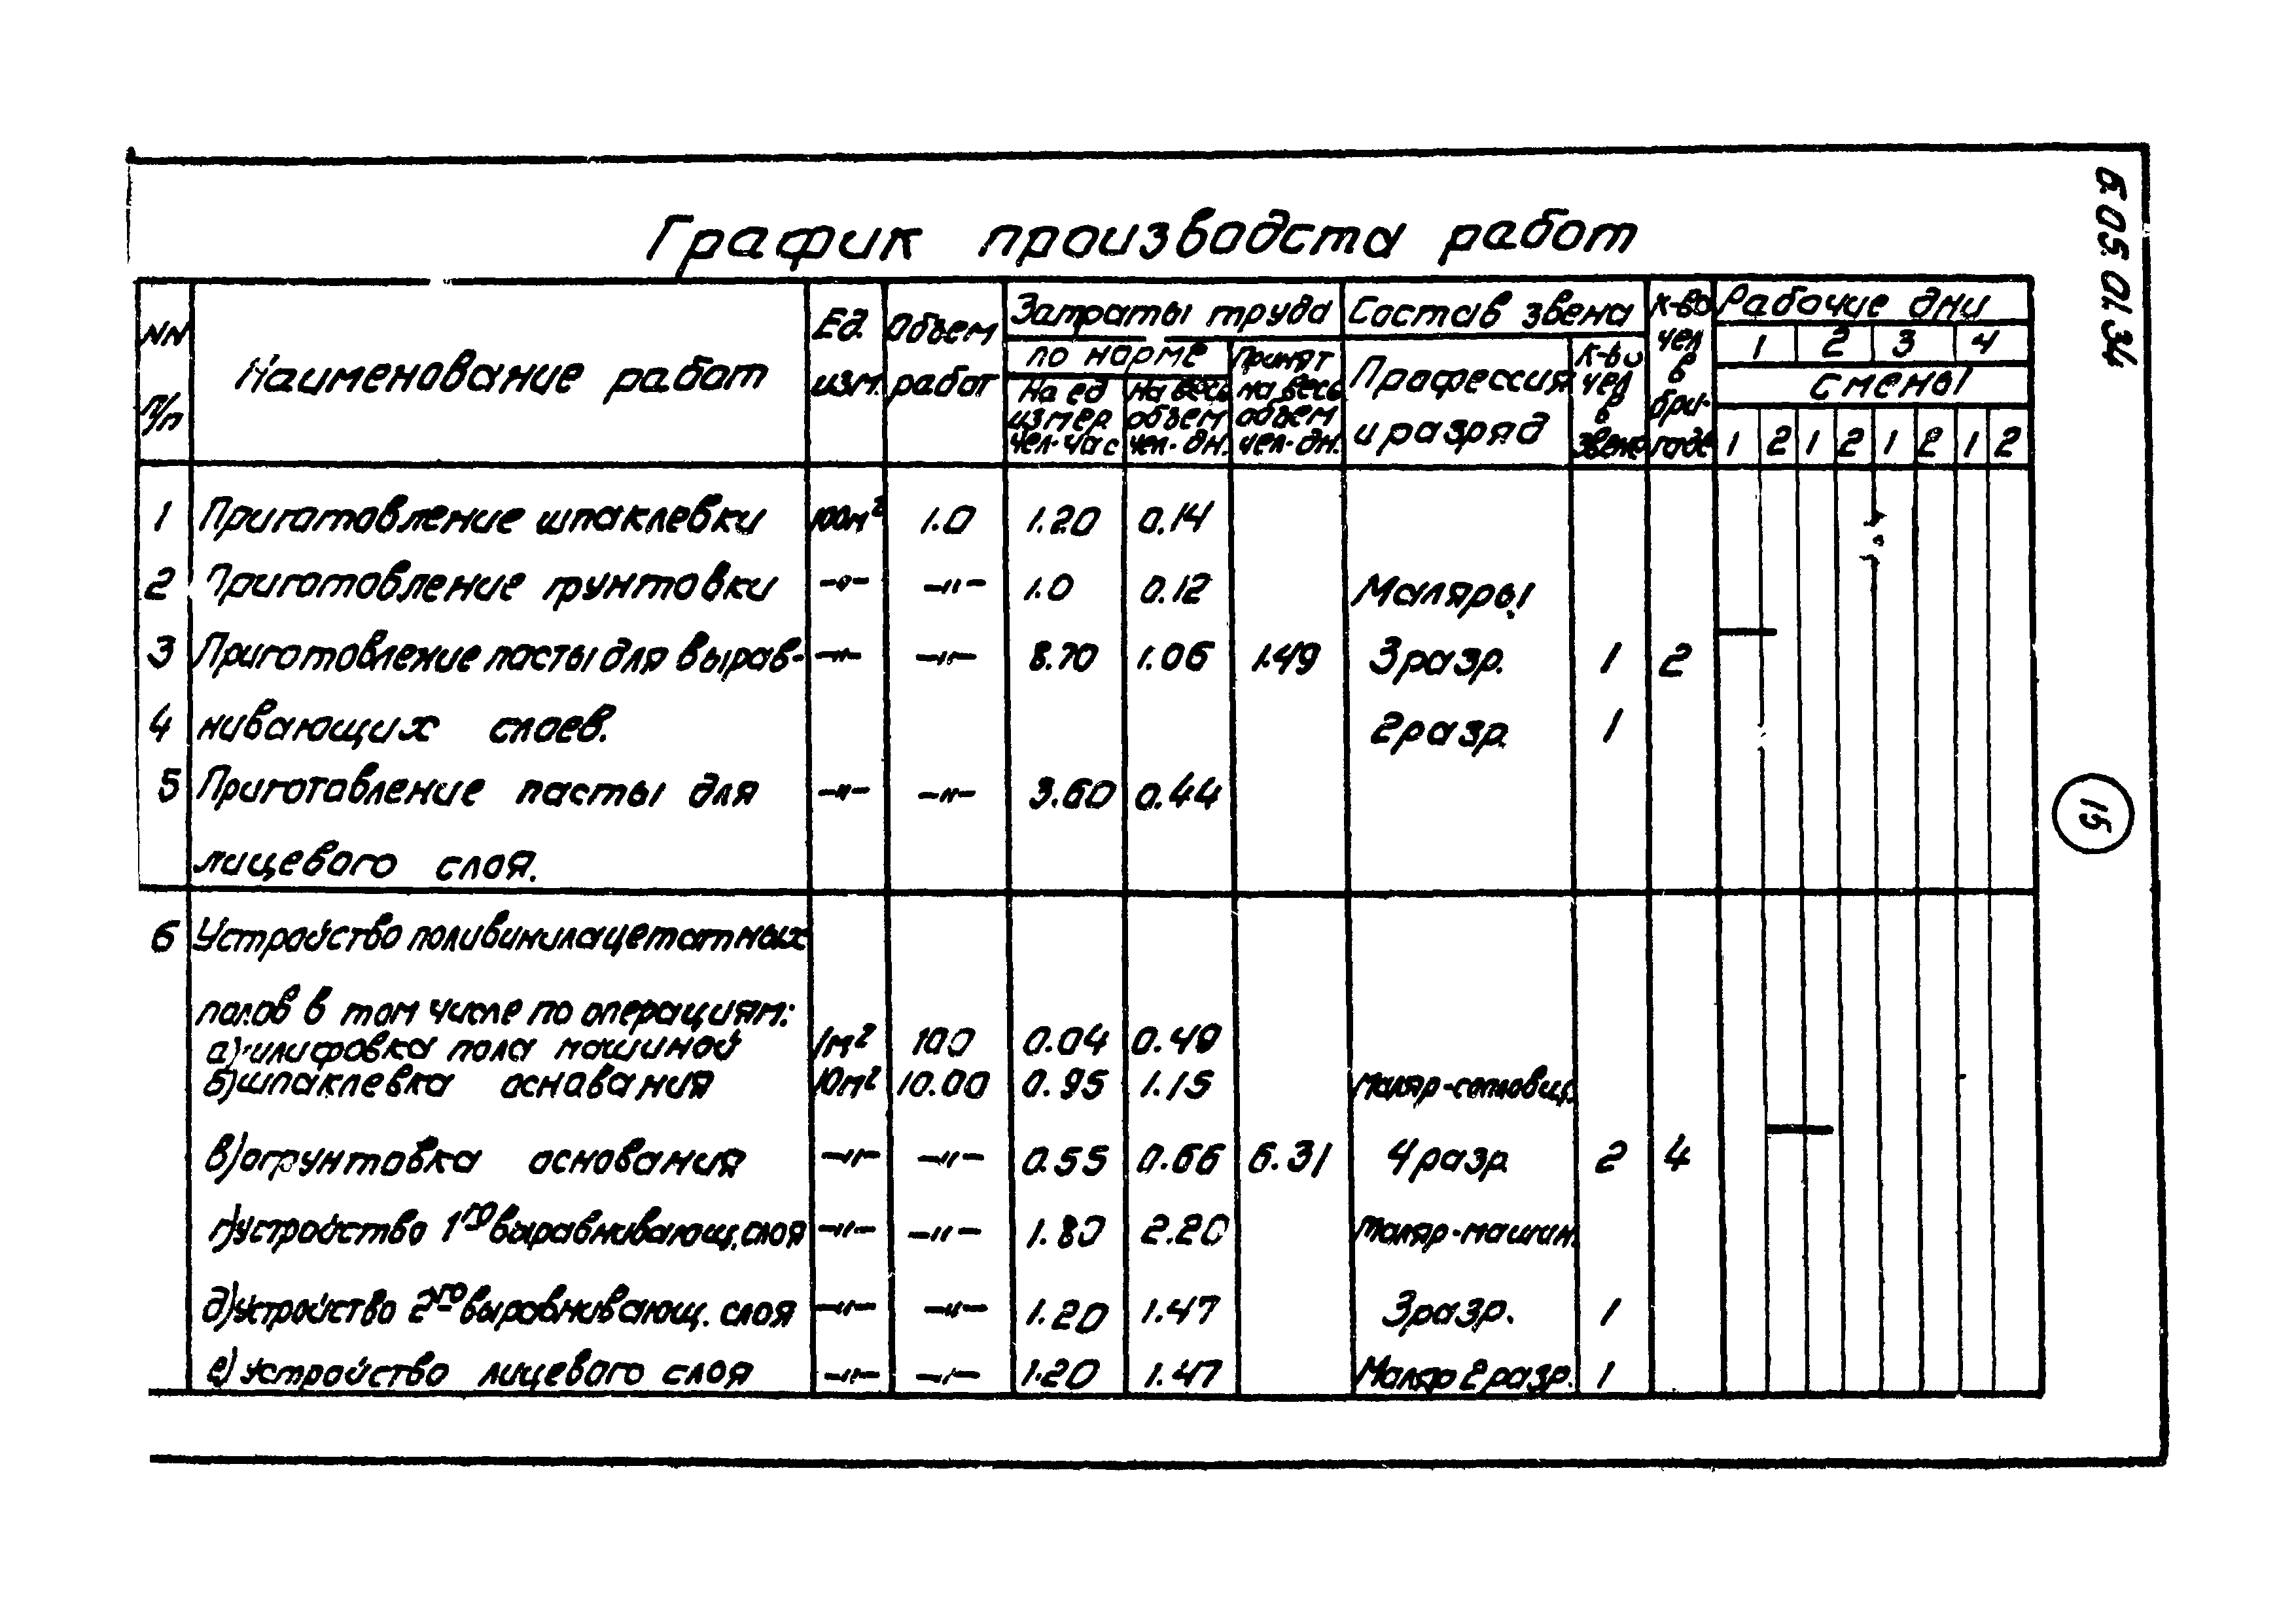 6.05.01.34
График производста работ
NN п/п
Наименование работ
Ед. изм.
Объем работ
Затраты труда
по норме
На ед измер. чел-час
на весь объем чел.-дн.
Принят на весь объем чел.-дн.
Состав звена
Профессия и разряд
к-во чел в звене
к-во чел в бригаде
Рабочие дни
1 2 3 4
смены
1 2 1 2 1 2 1 2
1 Приготовление шпаклевки 100м² 1.0 1.20 0.14
2 Приготовление грунтовки -"- -"- 1.0 0.12 Маляры
3 Приготовление пасты для вырав- -"- -"- 8.70 1.06 1.49 3 разр. 1 2
4 нивающих слоев. 2 разр. 1
5 Приготовление пасты для -"- -"- 3.60 0.44
лицевого слоя.
6 Устройство поливинилацетатных
полов в том числе по операциям:
а) шлифовка пола машиной 1м² 100 0.04 0.49
б) шпаклевка основания 10м² 10.00 0.95 1.15
в) огрунтовка основания -"- -"- 0.55 0.66 6.31 4 разр. 2 4
г) устройство 1го выравнивающ. слоя -"- -"- 1.80 2.20 Маляр-машин.
д) устройство 2го выравнивающ. слоя -"- -"- 1.20 1.47 3 разр. 1
е) устройство лицевого слоя -"- -"- 1.20 1.47 Маляр 2 разр. 1
15